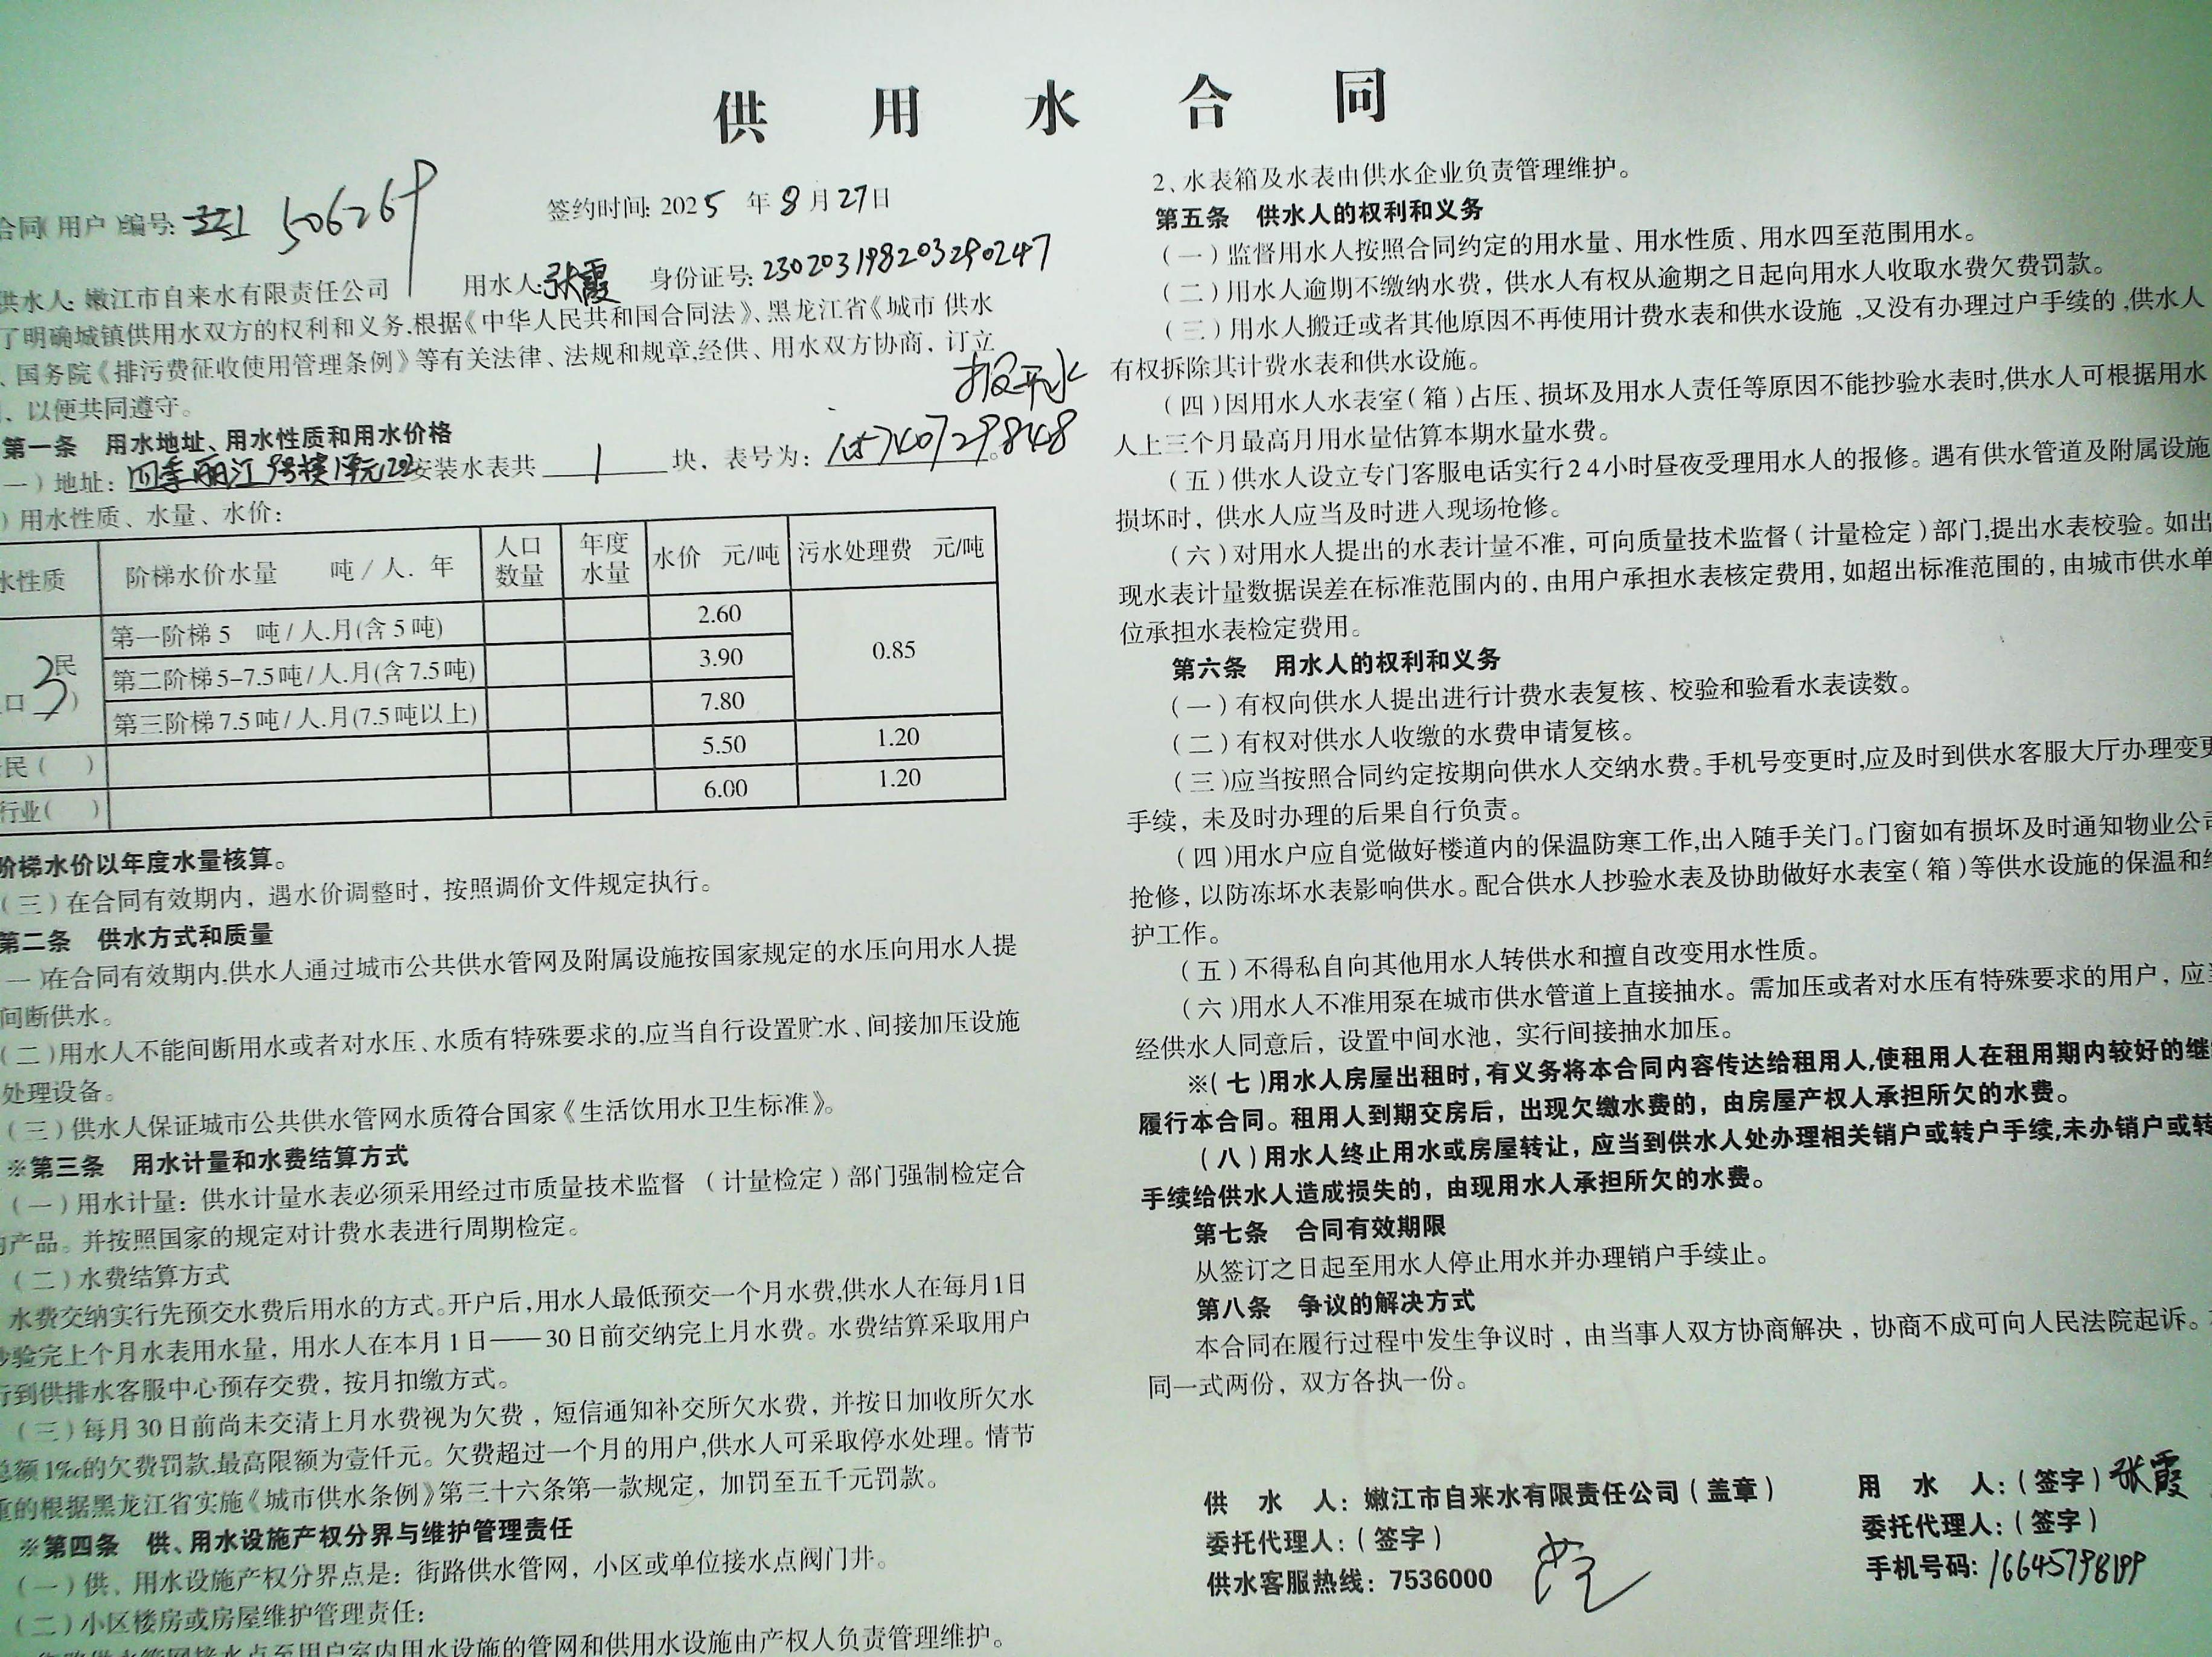 供用水合同
合同(用户)编号: 506269
签约时间: 2025年8月27日
供水人: 嫩江市自来水有限责任公司 用水人: 张霞 身份证号: 230203198203290247
了明确城镇供用水双方的权利和义务,根据《中华人民共和国合同法》、黑龙江省《城市 供水
、国务院《排污费征收使用管理条例》等有关法律、法规和规章,经供、用水双方协商,订立
、以便共同遵守。
报开水
第一条 用水地址、用水性质和用水价格
一)地址: 四季丽江 号楼1单元 安装水表共 1 块,表号为: 740729848
)用水性质、水量、水价:
水性质 阶梯水价水量 吨/人.年 人口数量 年度水量 水价 元/吨 污水处理费 元/吨
民 口3) 第一阶梯5 吨/人.月(含5吨) 2.60 0.85
第二阶梯5-7.5吨/人.月(含7.5吨) 3.90
第三阶梯7.5吨/人.月(7.5吨以上) 7.80
民( ) 5.50 1.20
行业( ) 6.00 1.20
阶梯水价以年度水量核算。
(三)在合同有效期内,遇水价调整时,按照调价文件规定执行。
第二条 供水方式和质量
一)在合同有效期内,供水人通过城市公共供水管网及附属设施按国家规定的水压向用水人提
间断供水。
(二)用水人不能间断用水或者对水压、水质有特殊要求的,应当自行设置贮水、间接加压设施
处理设备。
(三)供水人保证城市公共供水管网水质符合国家《生活饮用水卫生标准》。
※第三条 用水计量和水费结算方式
(一)用水计量:供水计量水表必须采用经过市质量技术监督 (计量检定)部门强制检定合
产品。并按照国家的规定对计费水表进行周期检定。
(二)水费结算方式
水费交纳实行先预交水费后用水的方式。开户后,用水人最低预交一个月水费,供水人在每月1日
验完上个月水表用水量,用水人在本月1日——30日前交纳完上月水费。水费结算采取用户
行到供排水客服中心预存交费,按月扣缴方式。
(三)每月30日前尚未交清上月水费视为欠费,短信通知补交所欠水费,并按日加收所欠水
总额1‰的欠费罚款,最高限额为壹仟元。欠费超过一个月的用户,供水人可采取停水处理。情节
重的根据黑龙江省实施《城市供水条例》第三十六条第一款规定,加罚至五千元罚款。
※第四条 供、用水设施产权分界与维护管理责任
(一)供、用水设施产权分界点是:街路供水管网,小区或单位接水点阀门井。
(二)小区楼房或房屋维护管理责任:
供水管网接水点至用户室内用水设施的管网和供用水设施由产权人负责管理维护。
2、水表箱及水表由供水企业负责管理维护。
第五条 供水人的权利和义务
(一)监督用水人按照合同约定的用水量、用水性质、用水四至范围用水。
(二)用水人逾期不缴纳水费,供水人有权从逾期之日起向用水人收取水费欠费罚款。
(三)用水人搬迁或者其他原因不再使用计费水表和供水设施,又没有办理过户手续的,供水人
有权拆除其计费水表和供水设施。
(四)因用水人水表室(箱)占压、损坏及用水人责任等原因不能抄验水表时,供水人可根据用水
人上三个月最高月用水量估算本期水量水费。
(五)供水人设立专门客服电话实行24小时昼夜受理用水人的报修。遇有供水管道及附属设施
损坏时,供水人应当及时进入现场抢修。
(六)对用水人提出的水表计量不准,可向质量技术监督(计量检定)部门,提出水表校验。如出
现水表计量数据误差在标准范围内的,由用户承担水表核定费用,如超出标准范围的,由城市供水单
位承担水表检定费用。
第六条 用水人的权利和义务
(一)有权向供水人提出进行计费水表复核、校验和验看水表读数。
(二)有权对供水人收缴的水费申请复核。
(三)应当按照合同约定按期向供水人交纳水费。手机号变更时,应及时到供水客服大厅办理变更
手续,未及时办理的后果自行负责。
(四)用水户应自觉做好楼道内的保温防寒工作,出入随手关门。门窗如有损坏及时通知物业公司
抢修,以防冻坏水表影响供水。配合供水人抄验水表及协助做好水表室(箱)等供水设施的保温和维
护工作。
(五)不得私自向其他用水人转供水和擅自改变用水性质。
(六)用水人不准用泵在城市供水管道上直接抽水。需加压或者对水压有特殊要求的用户,应当
经供水人同意后,设置中间水池,实行间接抽水加压。
※(七)用水人房屋出租时,有义务将本合同内容传达给租用人,使租用人在租用期内较好的继
履行本合同。租用人到期交房后,出现欠缴水费的,由房屋产权人承担所欠的水费。
(八)用水人终止用水或房屋转让,应当到供水人处办理相关销户或转户手续,未办销户或转
手续给供水人造成损失的,由现用水人承担所欠的水费。
第七条 合同有效期限
从签订之日起至用水人停止用水并办理销户手续止。
第八条 争议的解决方式
本合同在履行过程中发生争议时,由当事人双方协商解决,协商不成可向人民法院起诉。
同一式两份,双方各执一份。
供 水 人:嫩江市自来水有限责任公司(盖章) 用 水 人:(签字)张霞
委托代理人:(签字) 委托代理人:(签字)
供水客服热线:7536000 手机号码:16645798199